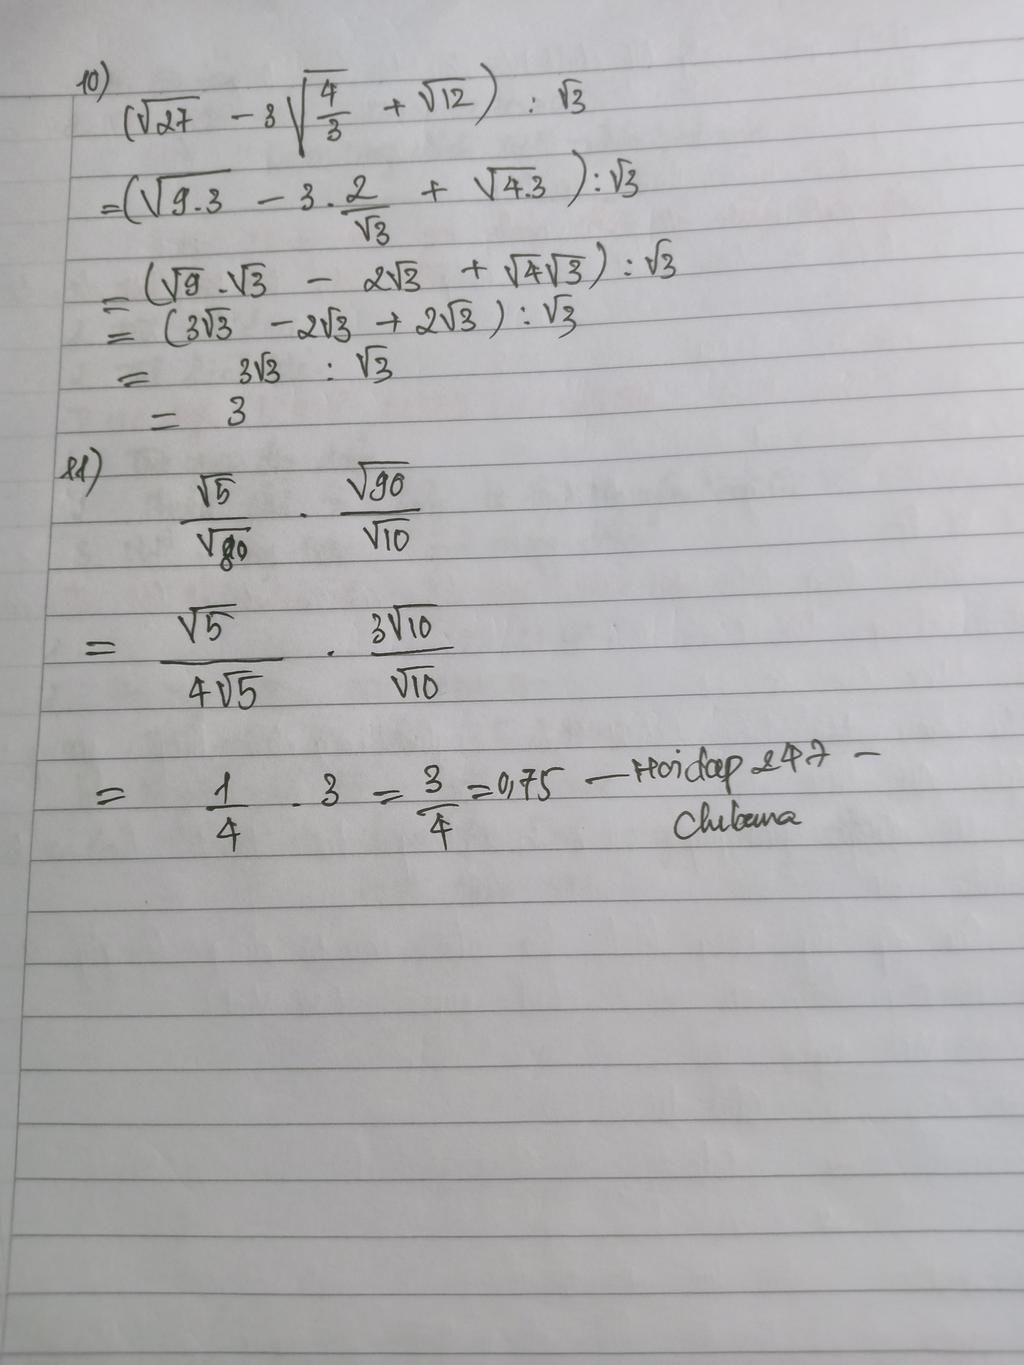 10)
(√27 - 3√(4/3) + √12) : √3
= (√9.3 - 3.2/√3 + √4.3) : √3
= (√9.√3 - 2√3 + √4√3) : √3
= (3√3 - 2√3 + 2√3) : √3
= 3√3 : √3
= 3
11)
√5/√80 . √90/√10
= √5/4√5 . 3√10/√10
= 1/4 . 3 = 3/4 = 0,75 — Hoidap 247 —